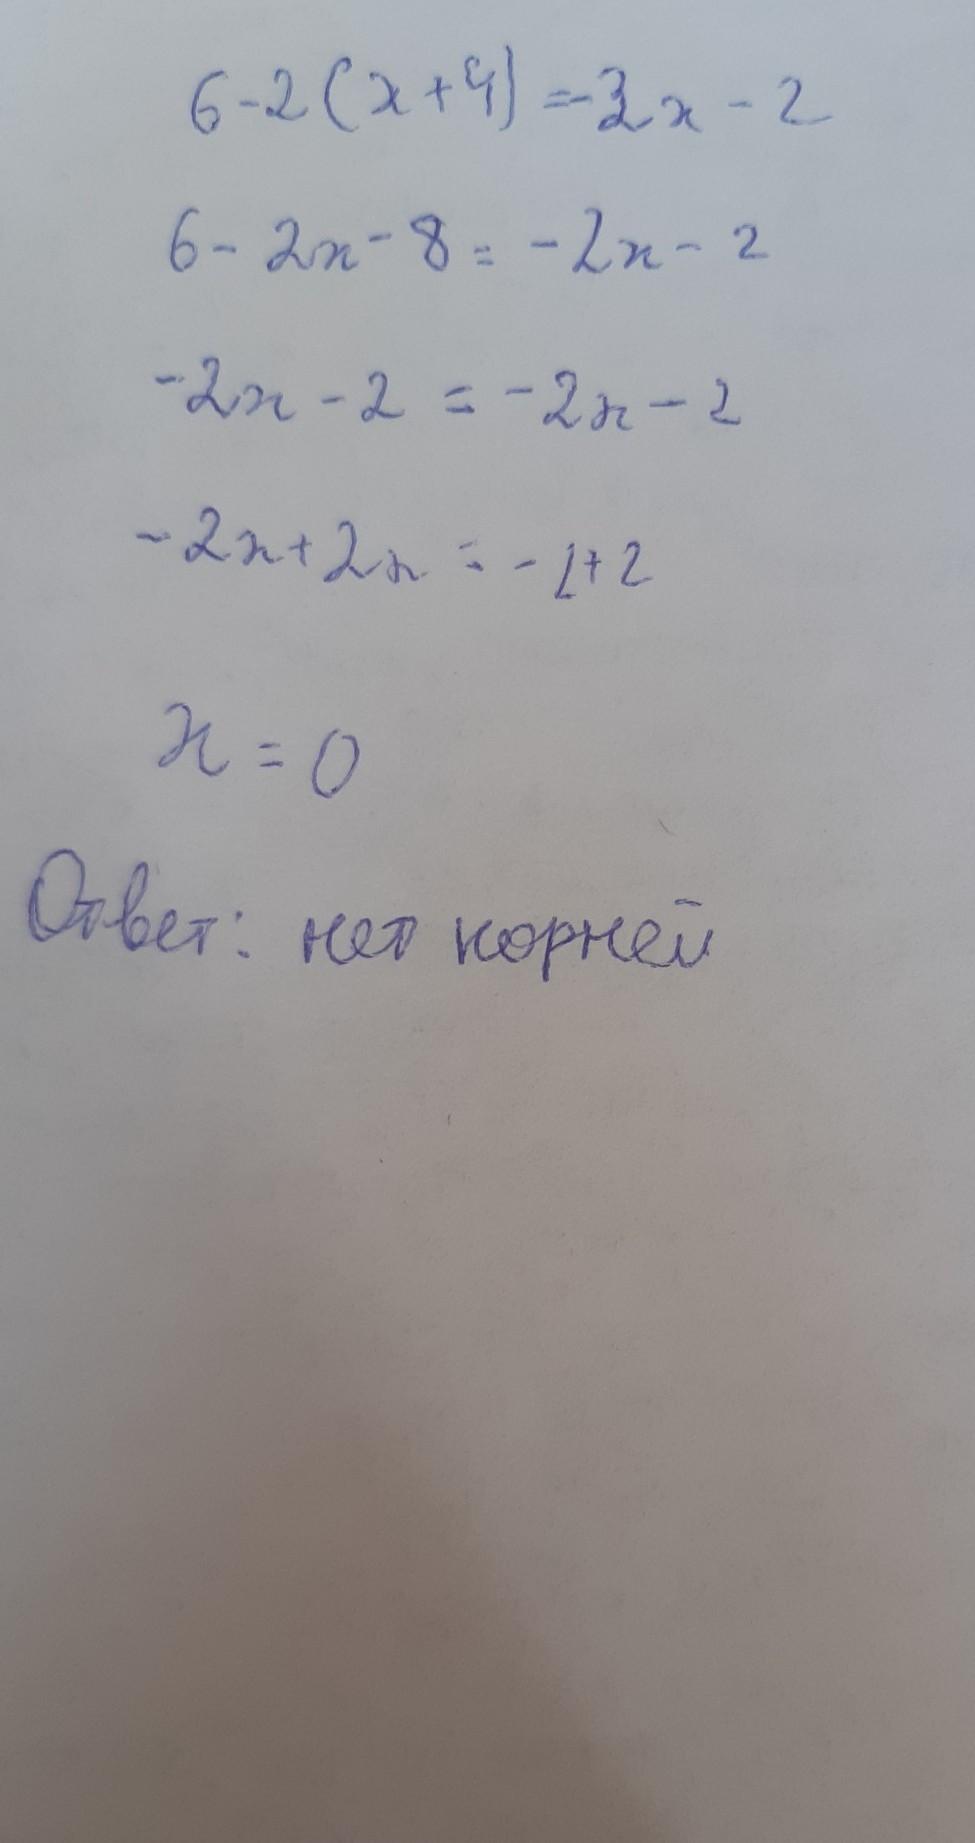 6-2(x+4)=-2x-2
6-2x-8=-2x-2
-2x-2=-2x-2
-2x+2x=-2+2
x=0
Ответ: нет корней